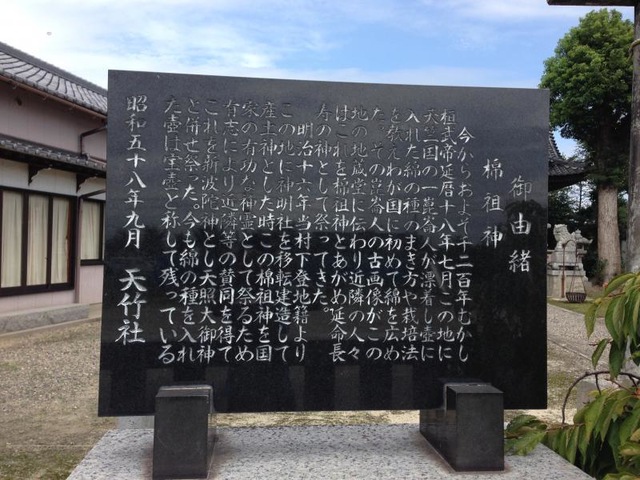 御由緒
棉祖神
今からおよそ千二百年むかし
桓武帝延暦十八年七月この地に
天竺国の一崑崙人が漂着し壺に
入れた綿の種のまき方や栽培法
を教えわが国に初めて綿を広め
た。その崑崙人の古画像がこの
地の地蔵堂に伝わり近隣の人々
はこれを棉祖神とあがめ延命長
寿の神として祭ってきた。
明治十六年当村下登地籍より
この地に神明社を移転建造して
産土神とした時この棉祖神を国
家の有功な神霊として祭るため
有志により近隣等の賛同を得て
これを新波陀神とし天照大御神
と併せ祭った。今も綿の種を入れ
た壺は宝壺と称して残っている
昭和五十八年九月 天竹社